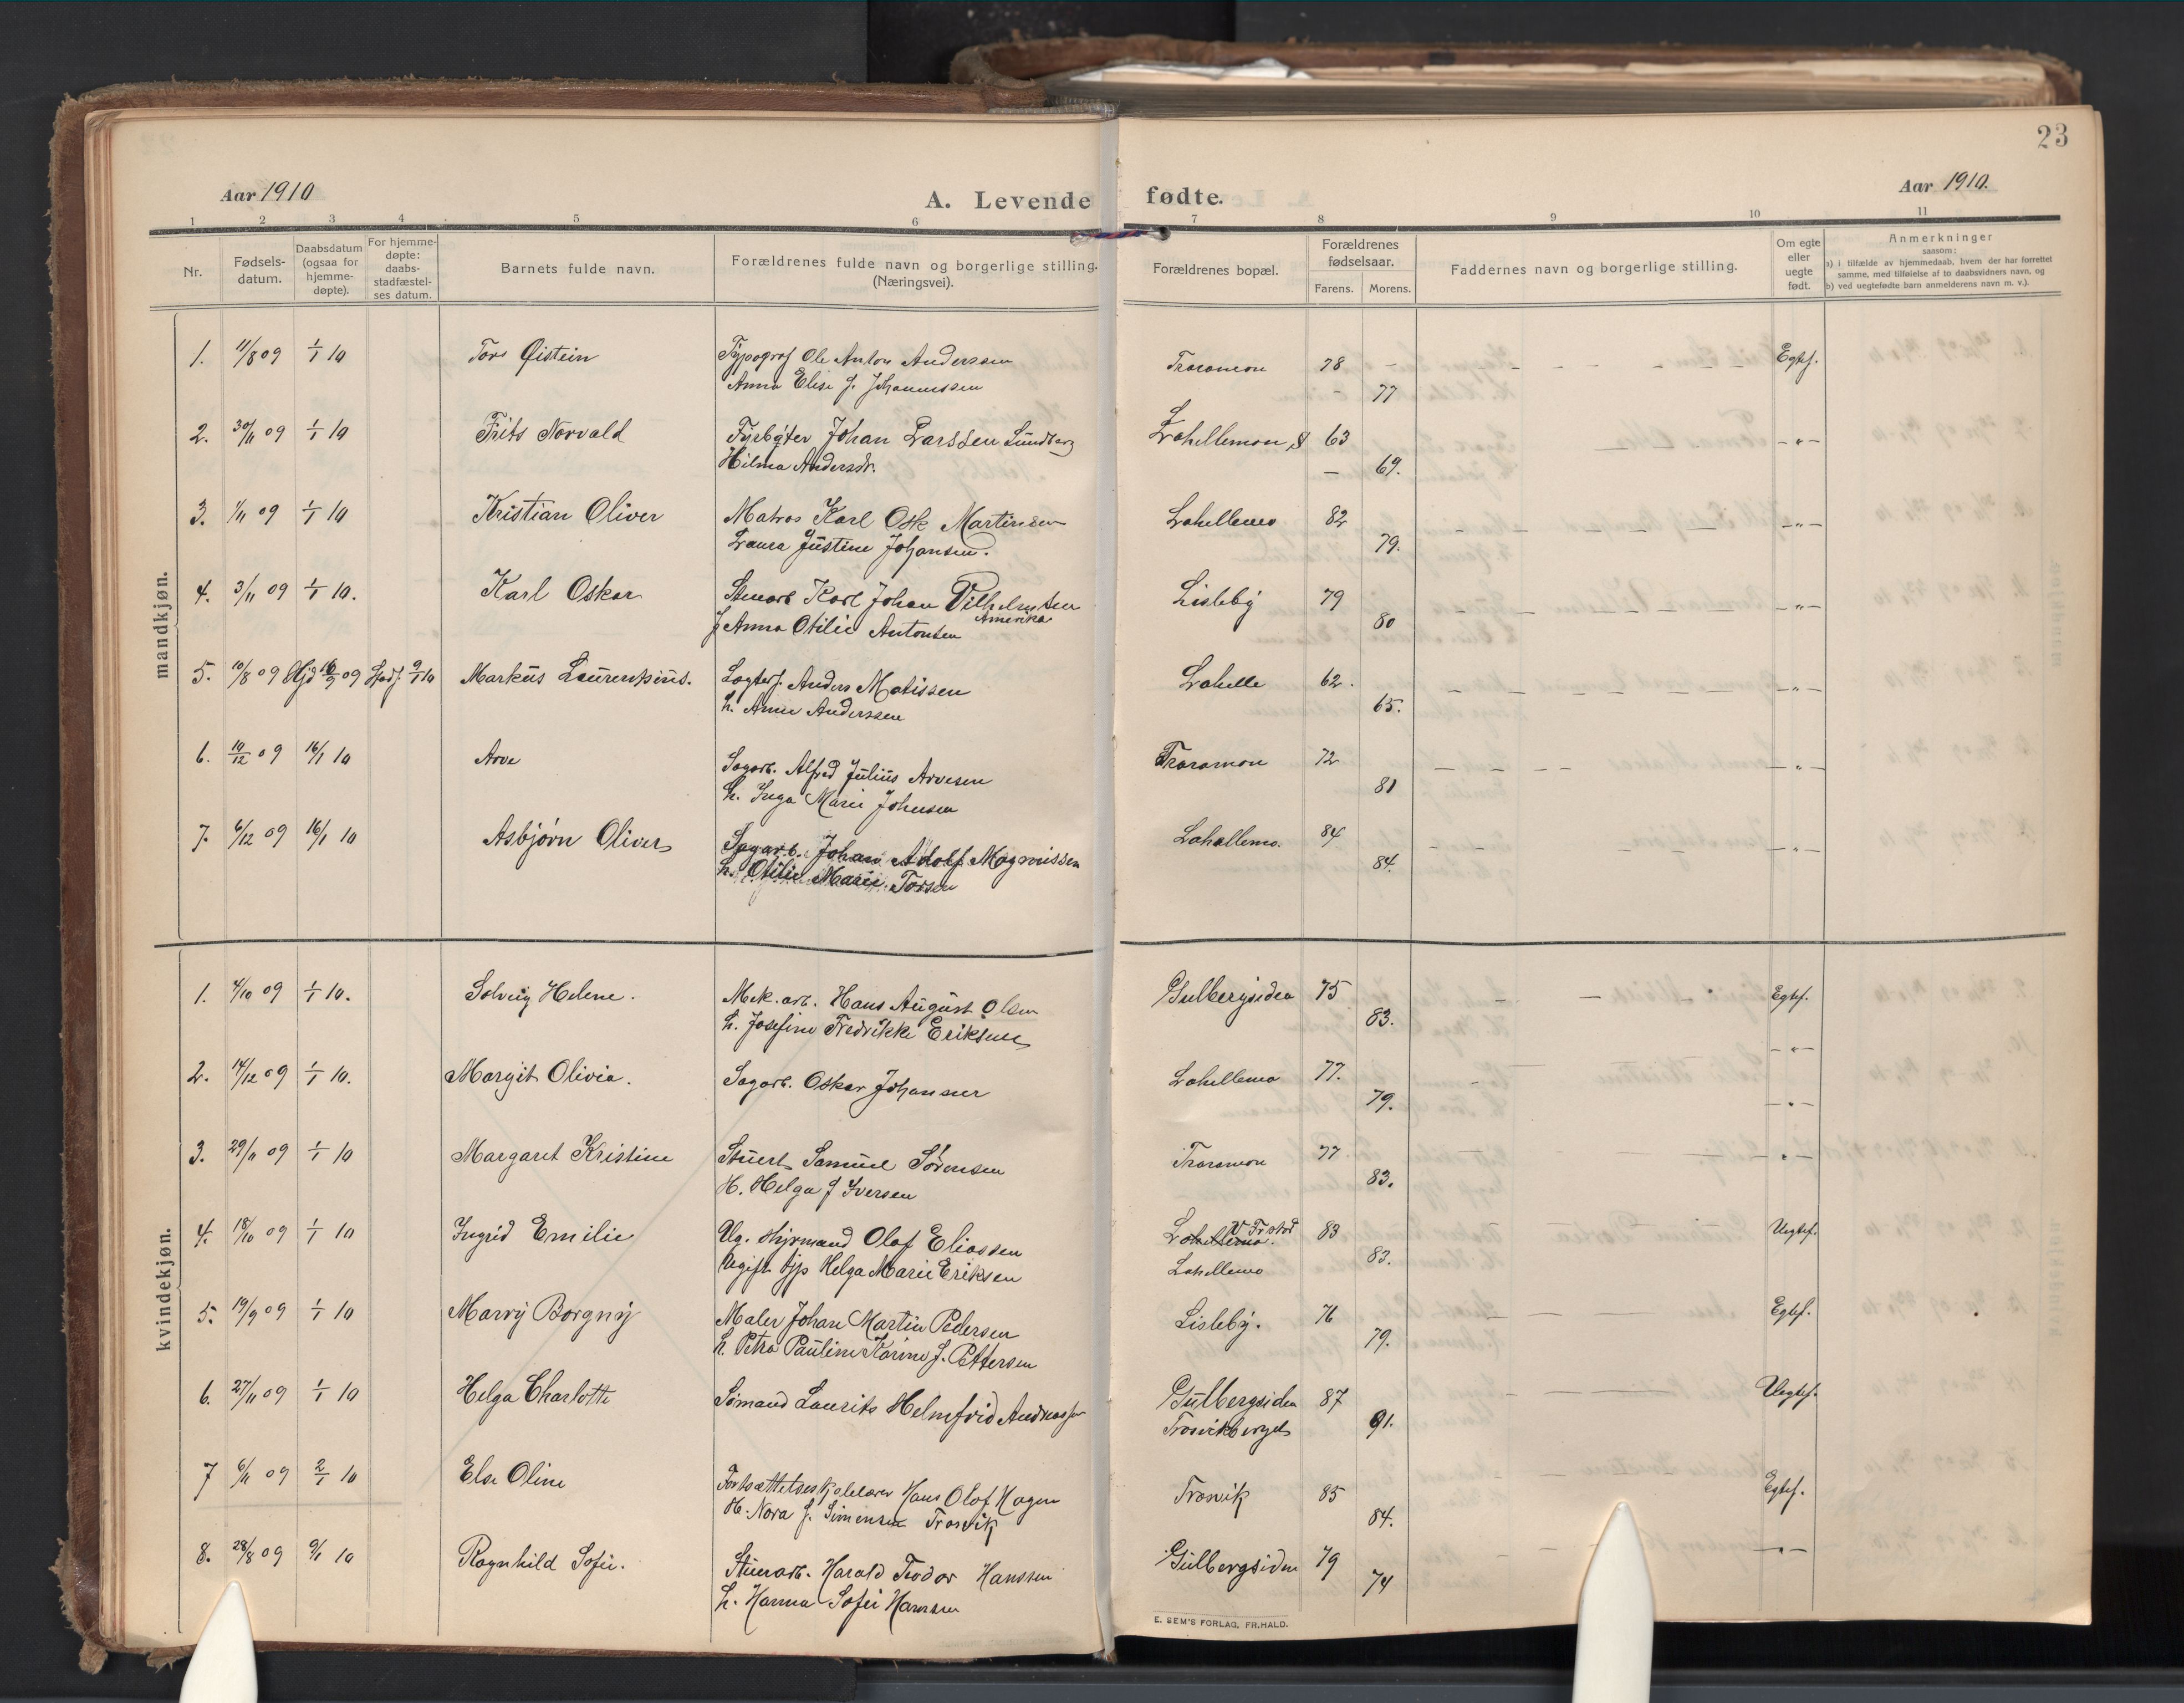 23
Aar 1910
A. Levende fødte.
Aar 1910.
1 2 3 4 5 6 7 8 9 10 11
Nr.
Fødsels-
datum.
Daabsdatum
(ogsaa for
hjemme-
døpte).
For hjemme-
døpte:
daabs-
stadfæstel-
ses datum.
Barnets fulde navn.
Forældrenes fulde navn og borgerlige stilling.
(Næringsvei).
Forældrenes bopæl.
Forældrenes
fødselsaar.
Farens. Morens.
Faddernes navn og borgerlige stilling.
Om egte
eller
uegte
født.
Anmerkninger
saasom:
a) i tilfælde av hjemmedaab, hvem der har forrettet
samme, med tilføielse af to daabsvidners navn, og
b) ved uegtefødte barn anmelderens navn m. v.).
mandkjøn.
1. 11/8 09 1/1 10 Tors Øistein Typograf Ole Anton Anderssen Traramon 78 Egtef.
Anna Elise f. Johannessen 77
2. 30/11 09 1/1 10 Frits Norvald Fyrbøter Johan Larssen Lundberg 63 -"-
Hilma Andersdr. 69.
3. 1/11 09 1/1 10 Kristian Oliver Matros Karl Osk Martinsen Lahellemo 82 -"-
Laura Justine Johansen. 79.
4. 3/11 09 1/1 10. Karl Oskar Stenarb Karl Johan Vilhelmsen Lisleby 79 -"-
Amerika
Anna Otilie Antonsen 80
5. 10/8 09 Hjd 16/9 09 Stadf. 9/1 10 Markus Laurentsius. Anders Matissen Lahelle 62. -"-
h. Anne Anderssen 65.
6. 10/12 09 16/1 10 Arve Sagarb. Alfred Julius Arvesen Traramon 72 -"-
h. Inga Marie Johnsen 81
7. 6/12 09 16/1 10 Asbjørn Oliver Sagarb. Johan Adolf Magnussen Lahellemo. 84 -"-
h. Otilie Marie Torsen 84.
kvindekjøn.
1. 4/10 09 1/1 10. Solveig Helene. Mek. arb. Hans August Olsen Gulbergsiden 75 Egtef.
h. Josefine Fredrikke Eriksen 83.
-"-
2. 14/12 09 1/1 10. Margit Olivia. Sagarb. Oskar Johansen Lahellemo 77.
79. -"-
3. 29/11 09 1/1 10 Margaret Kristine Stuert Samuel Sørensen Traramon 77 -"-
H. Helga f Iversen 83.
4. 18/10 09 1/1 10 Ingrid Emilie Ug. Styrmand Olaf Eliassen Lahellemo. V Fr.stad 83 Uegtef.
Ugift tjp Helga Marie Eriksen Lahellemo 83.
5. 19/9 09 1/1 10 Marry Borgny Maler Johan Martin Pedersen Lisleby. 76 Egtef.
h. Petra Pauline Karine f. Pettersen 79.
6. 27/11 09 1/1 10 Helga Charlotte Sømand Laurits Helmfrid Gulbergsiden 87 Uegtef.
Trosvikberget 91.
7 6/11 09 2/1 10 Else Oline Hans Olaf Hagen Trosvik 85 Egtef.
H. Nora f. Simensen Trosvik 84.
8. 28/8 09 9/1 10 Ragnhild Sofie. Stuerarb. Harald Teodor Hanssen Gulbergsiden 79 -"-
h. Hanna Sofie Hansen 74
E. SEM'S FORLAG, FR.HALD.